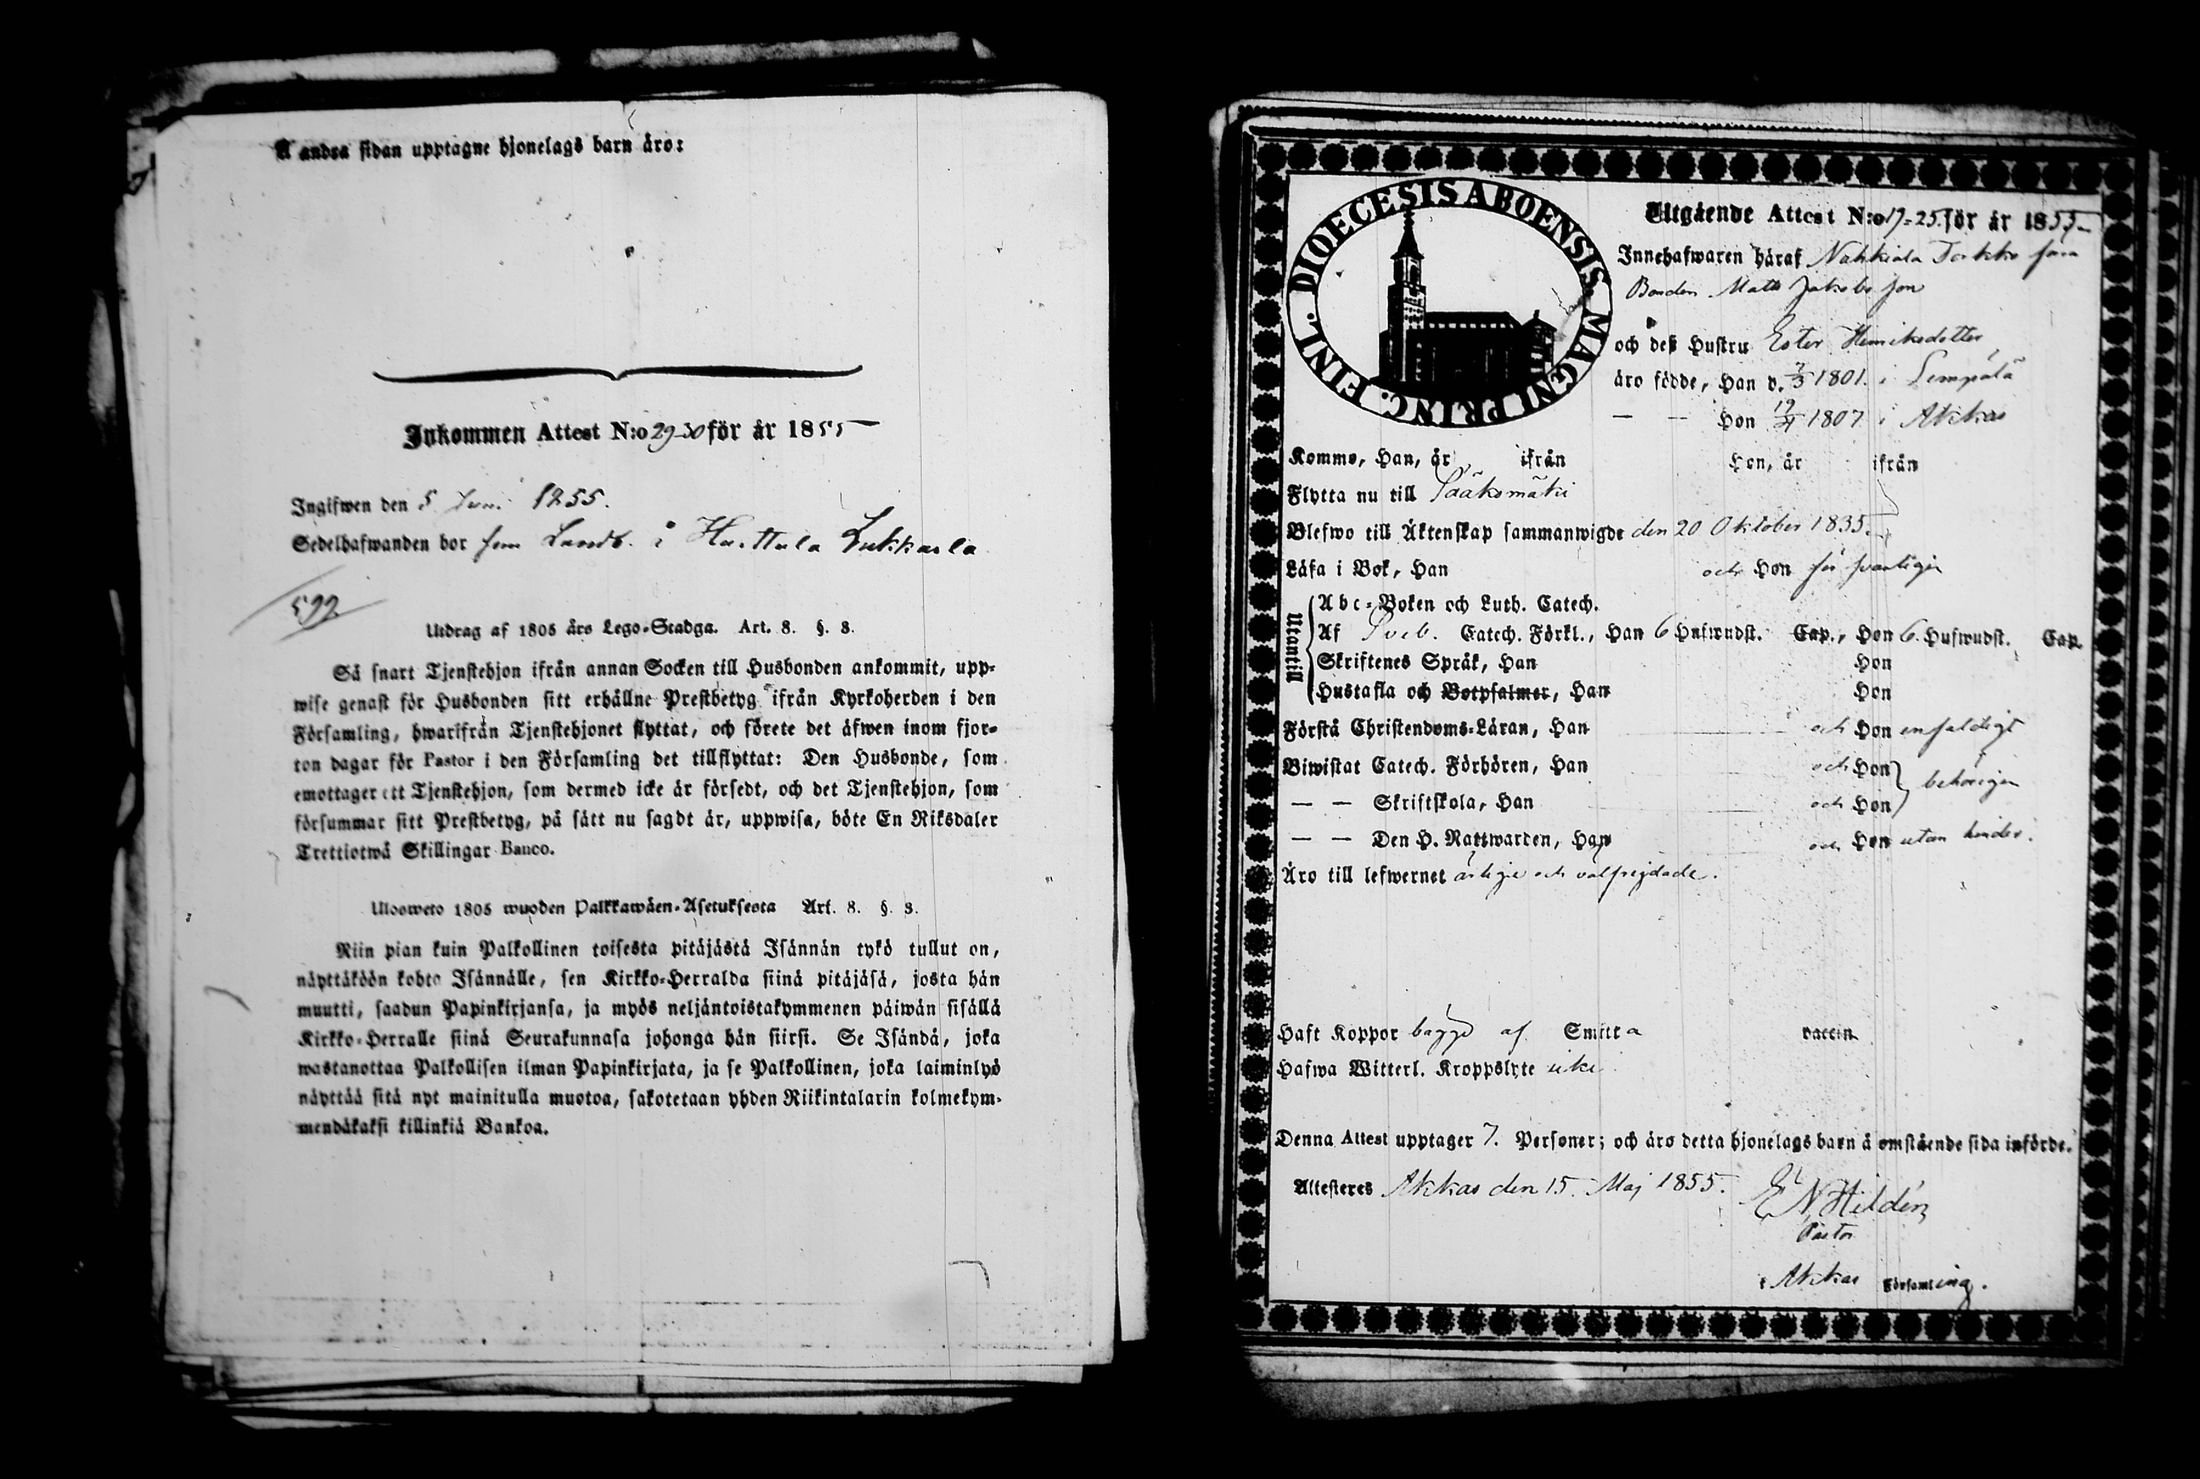 Å andra sidan upptagne hjonelags barn äro:
Inkommen Attest N:o 29-30 för år 1855
Ingifwen den 5 Juni 1855.
Sedelhafwanden bor som Landb. i Huittula Lukkarla
592
Utdrag af 1805 års Lego-Stadga. Art. 8. §. 3.
Så snart Tjenstehjon ifrån annan Socken till Husbonden ankommit, upp-
wise genast för Husbonden sitt erhållne Prestbetyg ifrån Kyrkoherden i den
Församling, hwarifrån Tjenstehjonet flyttat, och förete det äfwen inom fjor-
ton dagar för Pastor i den Församling det tillflyttat: Den Husbonde, som
emottager ett Tjenstehjon, som dermed icke är försedt, och det Tjenstehjon, som
försummar sitt Prestbetyg, på sätt nu sagdt är, uppwisa, böte En Riksdaler
Trettiotwå Skillingar Banco.
Ulosweto 1805 wuoden Palkkawäen-Asetuksesta Art. 8. §. 3.
Niin pian kuin Palkollinen toisesta pitäjästä Isännän tykö tullut on,
näyttäköön kohta Isännälle, sen Kirkko-Herralda siinä pitäjäsä, josta hän
muutti, saadun Papinkirjansa, ja myös neljäntoistakymmenen päiwän sisällä
Kirkko-Herralle siinä Seurakunnasa johonga hän siirsi. Se Isändä, joka
wastanottaa Palkollisen ilman Papinkirjata, ja se Palkollinen, joka laiminlyö
näyttää sitä nyt mainitulla muotoa, sakotetaan yhden Riikintalarin kolmekym-
mendäkaksi killinkiä Bankoa.
DIOECESIS ABOENSIS MAGNI PRINC. FINL.
Utgående Attest N:o 19-25 för år 1855
Innehafwaren häraf Nahkiala Torkko fara
Bonden Matts Jakobsson
och deß Hustru Ester Henriksdotter
äro födde, Han d. 7/3 1801. i Lempälä
— — Hon 19/4 1807 i Akkas
Komme, Han, år ifrån Hon, år ifrån
Flytta nu till Sääksmäki
Blefwo till Äktenskap sammanwigde den 20 Oktober 1835.
Läsa i Bok, Han och Hon försvarligen
Utantill
Abc-Boken och Luth. Catech.
Af Sveb. Catech. Förkl., Han 6 Hufwudst. Cap., Hon 6. Hufwudst. Cap.
Skriftenes Språk, Han Hon
Hustafla och Botpsalmer, Han Hon
Förstå Christendoms-Läran, Han och Hon enfaldigt
Biwistat Catech. Förhören, Han och Hon behörigen
— — Skriftskola, Han och Hon
— — Den H. Nattwarden, Han och Hon utan hinder.
Äro till lefwernet ärlige och välfrejdade.
Haft Koppor bägge af Smitta vaccin
Hafwa Witterl. Kroppslyte icke
Denna Attest upptager 7. Personer; och äro detta hjonelags barn å omstående sida införde.
Attesteres Akkas den 15. Maj 1855.
E N Hildén
Pastor
i Akkas Församling.